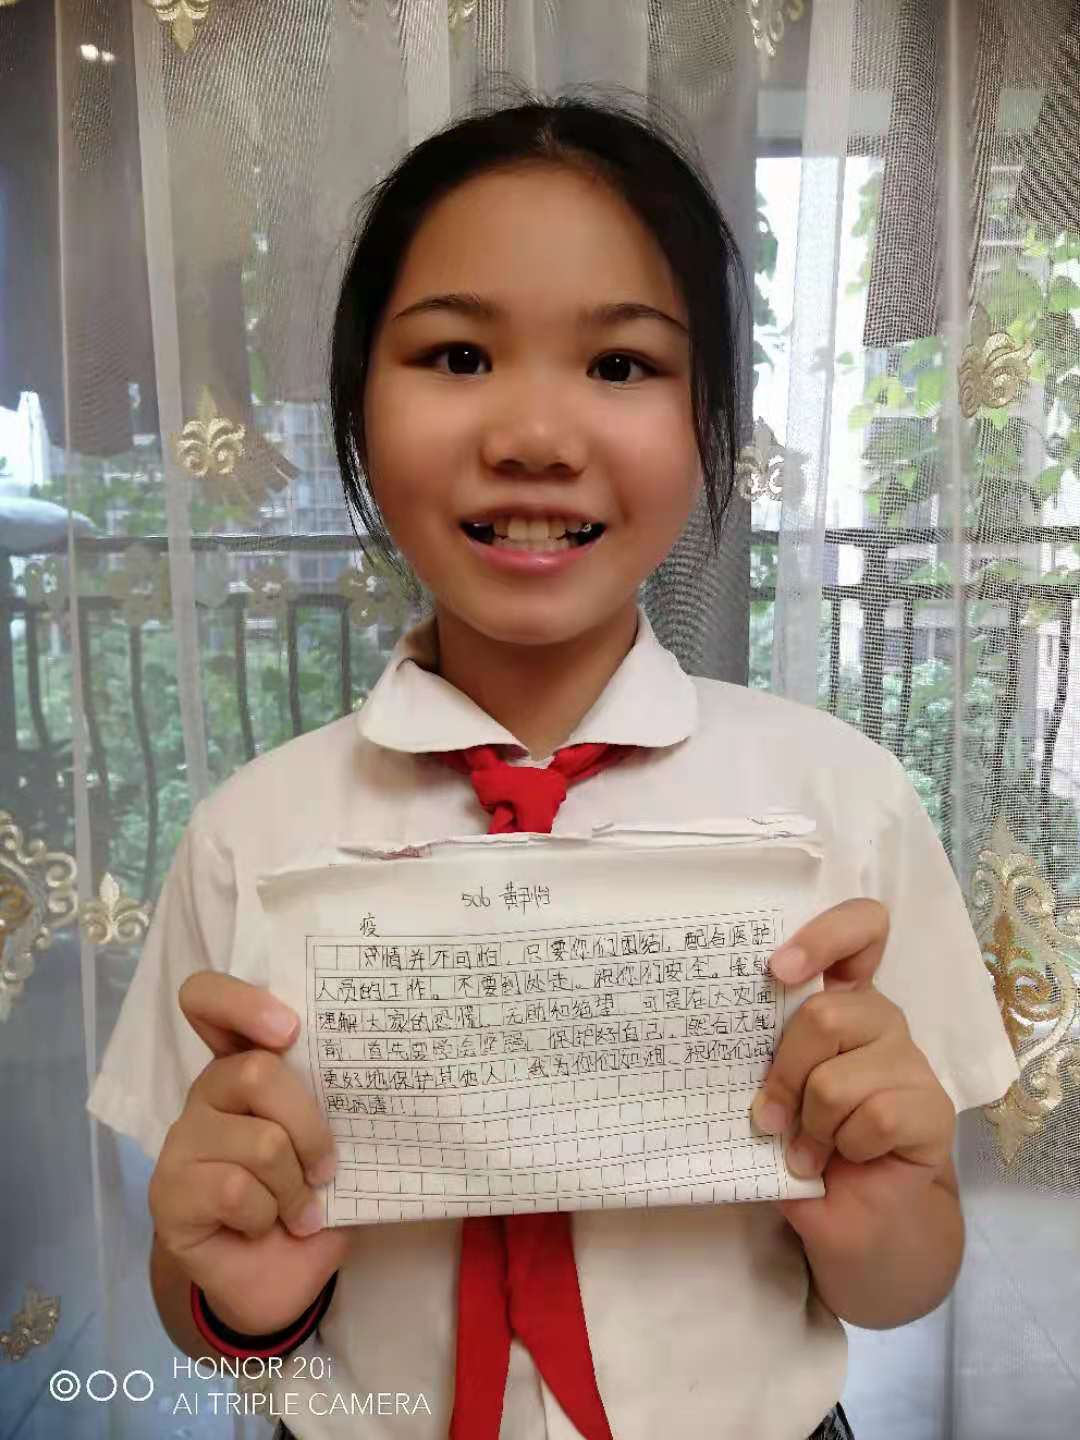 506 黄尹怡
疫
情并不可怕，只要你们团结，配合医护
人员的工作。不要到处走。祝你们安全。我能
理解大家的恐惧、无助和绝望，可是在大灾面
前，首先要学会坚强，保护好自己，然后才能
更好地保护其他人！我为你们加油，祝你们战
胜病毒！！
HONOR 20i
AI TRIPLE CAMERA